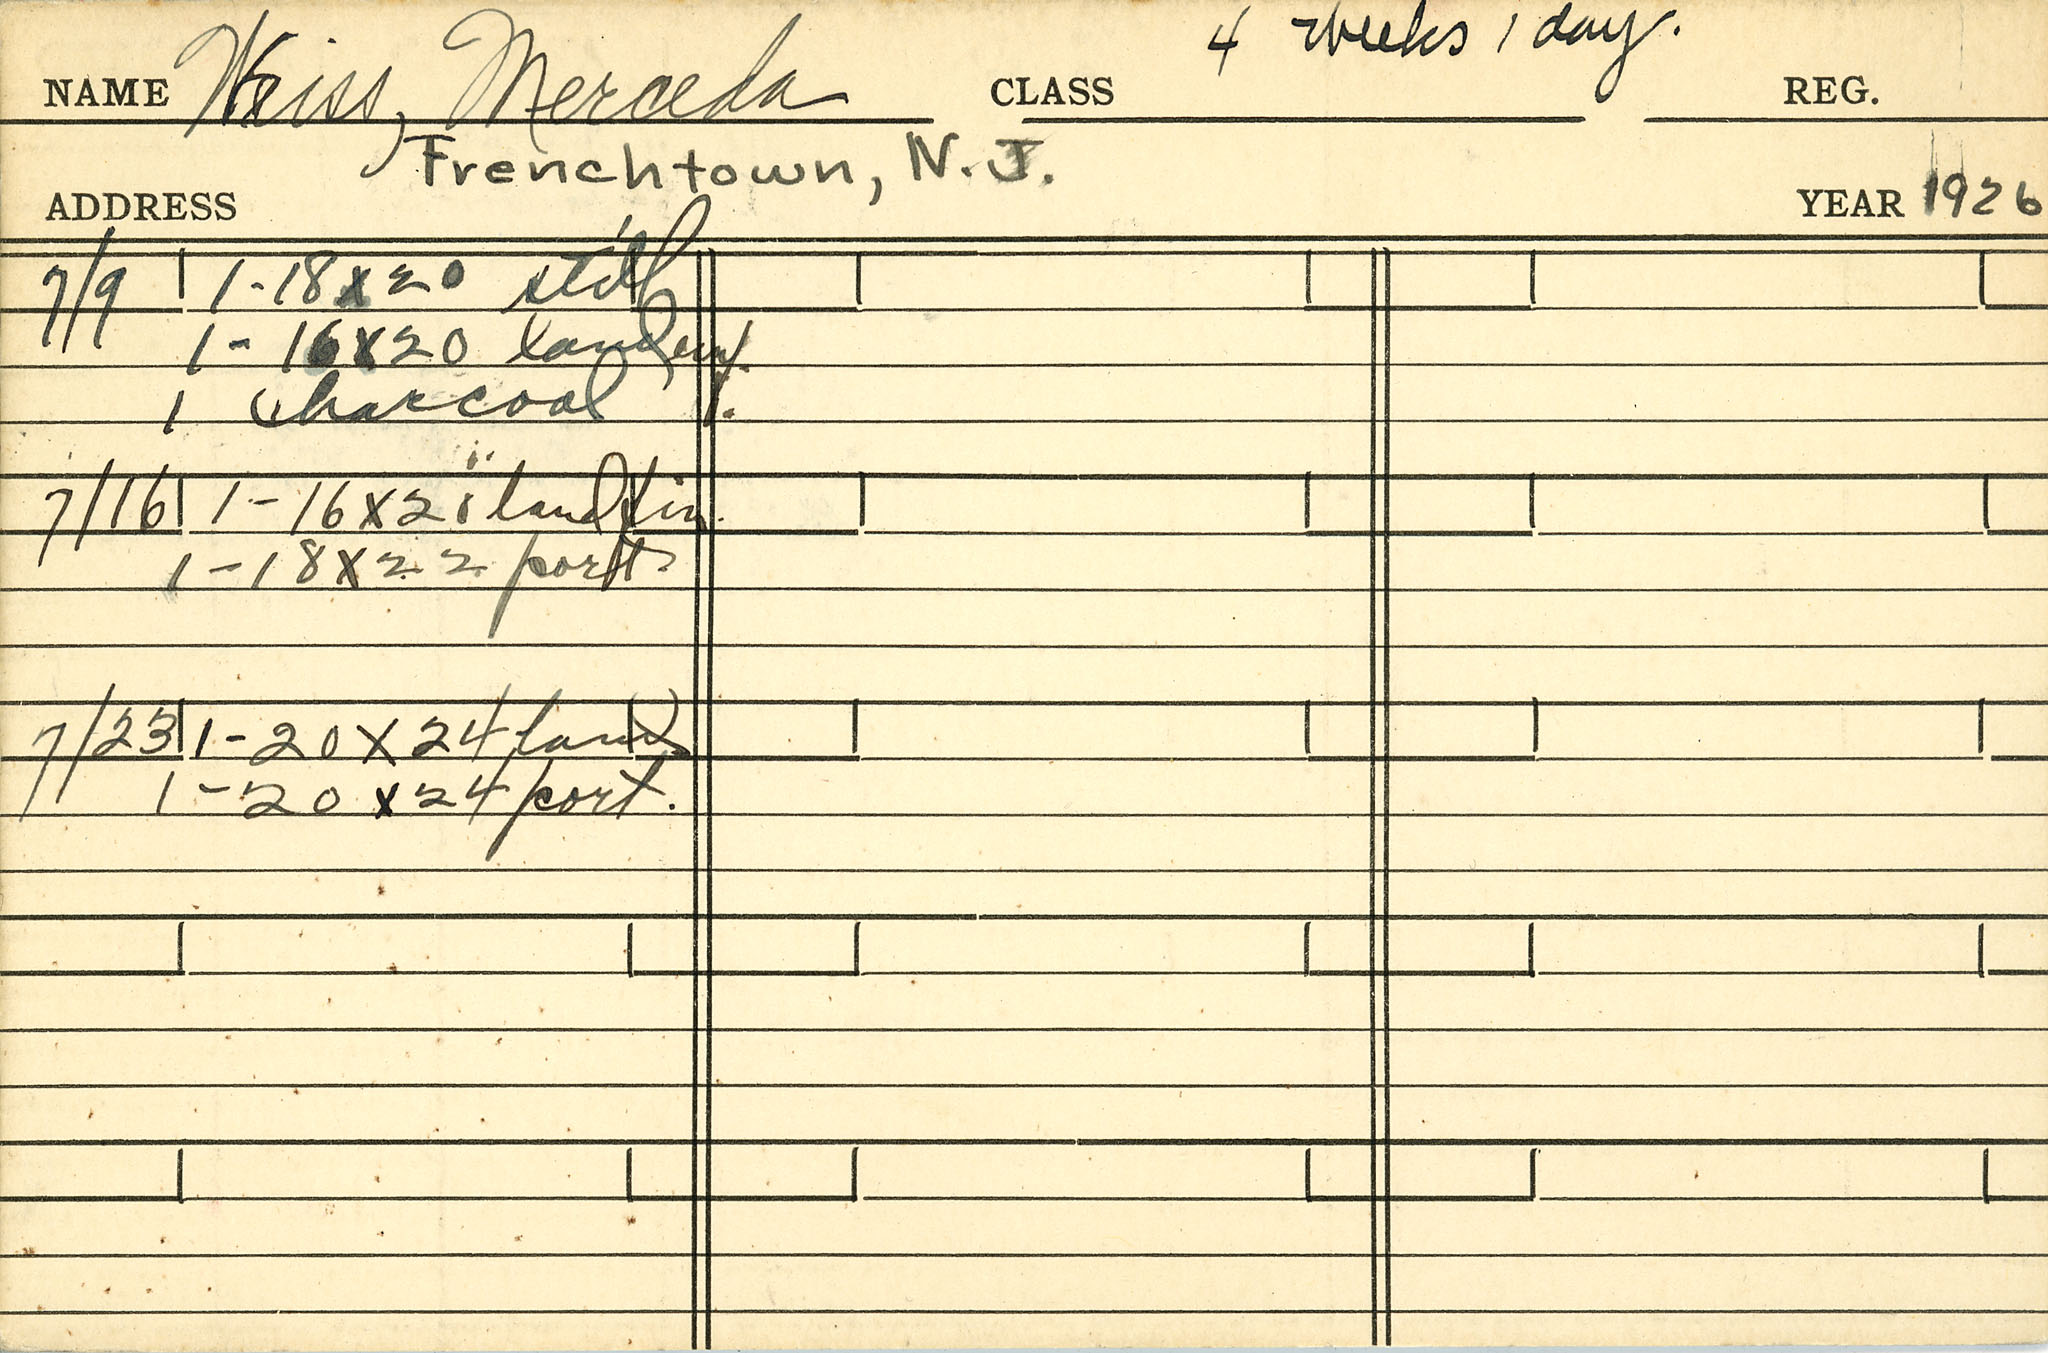 4 weeks 1 day.
NAME Weiss, Merceda CLASS REG.
Frenchtown, N.J.
ADDRESS YEAR 1926
7/9 1-18x20 still
1-16x20
1 Charcoal
7/16 1-16x20 land
1-18x22 port.
7/23 1-20x24 land
1-20x24 port.